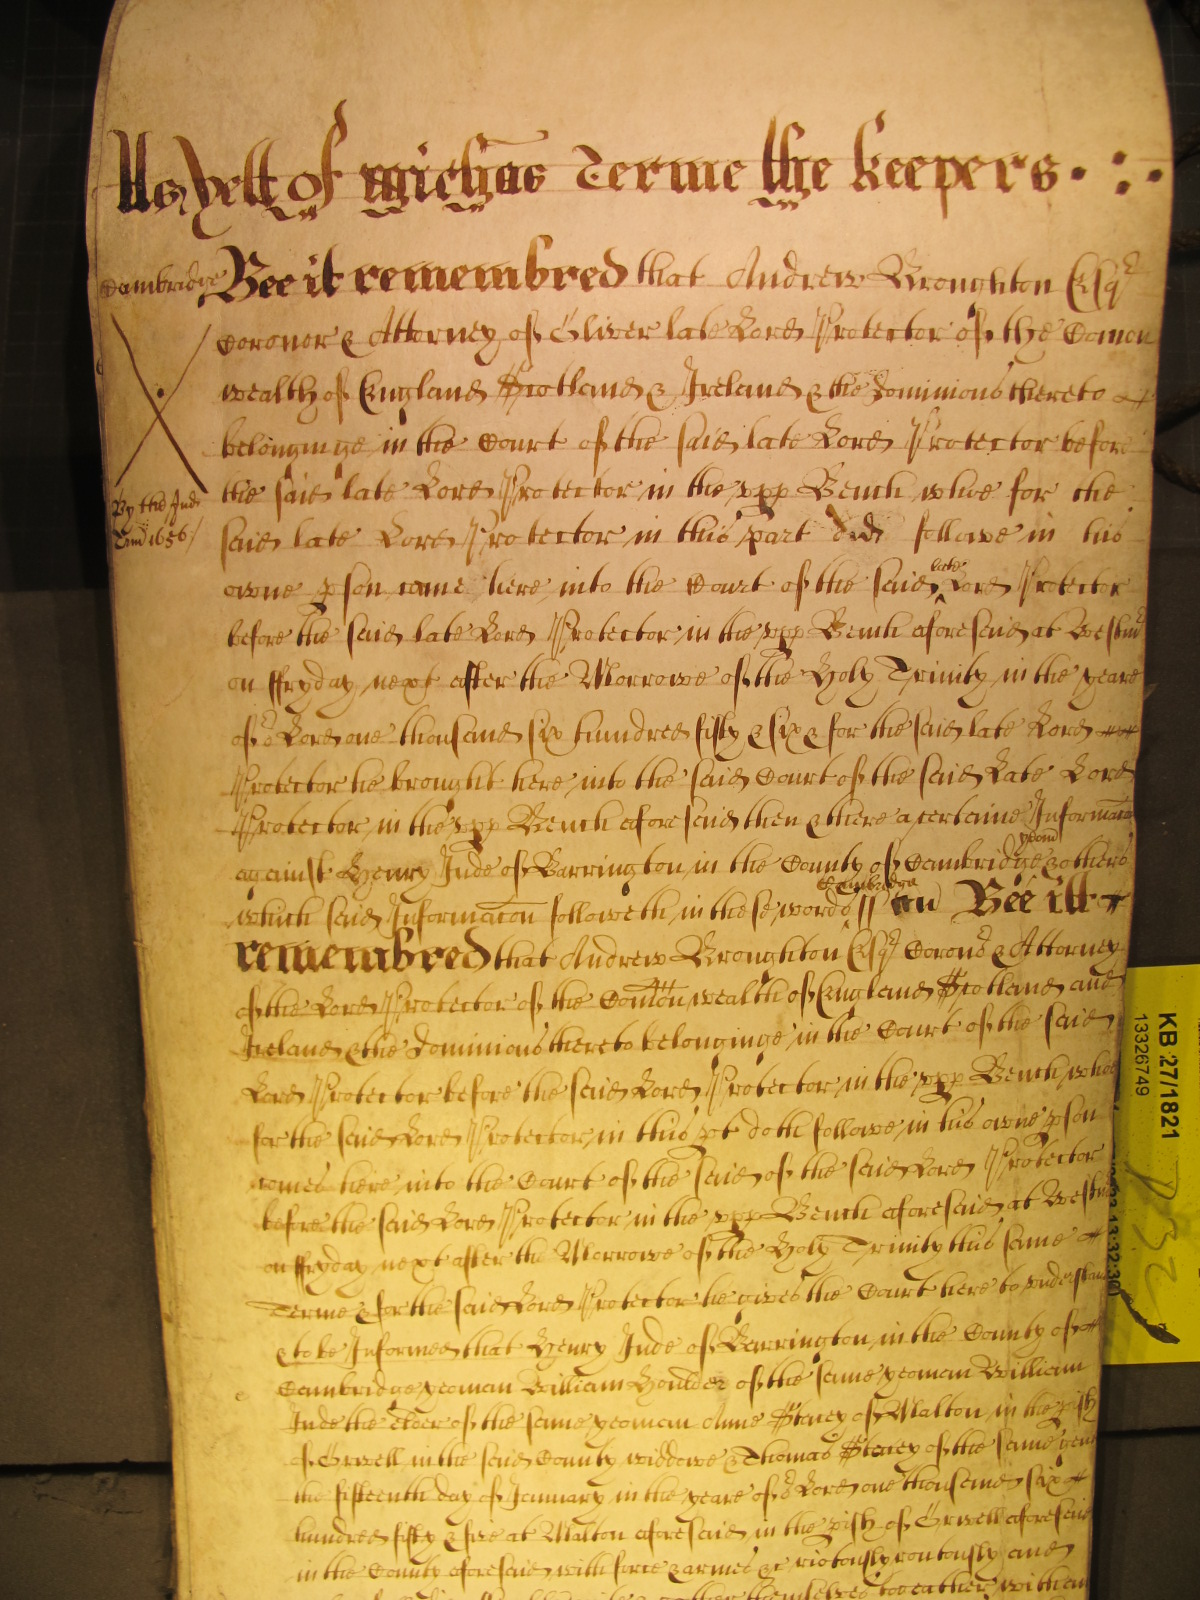 As yett of Mich'as Terme the Keepers
Cambridge
Bee it remembred that Andrew Broughton Esqr
Coroner & Attorney of Oliver late Lord Protector of the Comon
wealth of England Scotland & Ireland & the Dominions thereto
belonginge in the Court of the said late Lord Protector before
the said late Lord Protector in the vpp Bench whoe for the
said late Lord Protector in this part did followe in his
By the Inds
owne pson came here into the Court of the said late Lord Protector
before the said late Lord Protector in the vpp Bench aforesaid at Westmr
on ffryday next after the Morrowe of the Holy Trinity in the yeare
of or Lord one thousand six hundred fifty & six & for the said late Lord
Protector he brought here into the said Court of the said Late Lord
Protector in the vpp Bench aforesaid then & there a certaine Informacon
against Henry Jude of Barrington in the County of Cambridge yeom & others
which said Informacon followeth in these words ss Cambridge Bee itt
remembred that Andrew Broughton Esqr Coronr & Attorney
of the Lord Protector of the Comon wealth of England Scotland and
Ireland & the Dominions thereto belonginge in the Court of the said
Lord Protector before the said Lord Protector in the vpp Bench whoe
for the said Lord Protector in this pt doth followe in his owne pson
comes here into the Court of the said of the said Lord Protector
before the said Lord Protector in the vpp Bench aforesaid at Westmr
on ffryday next after the Morrowe of the Holy Trinity this same
Terme & for the said Lord Protector he gives the Court here to vnderstand
& to be Informed that Henry Jude of Barrington in the County of
Cambridge yeoman William Houlder of the same yeoman William
Jude the elder of the same yeoman Anne Stacey of Malton in the pish
of Orwell in the said County widdowe & Thomas Stacey of the same yeom
the fifteenth day of January in the yeare of or Lord one thousand six
hundred fifty & five at Malton aforesaid in the pish of Orwell aforesaid
in the County aforesaid with force & armes &c riotously routously and
themselves togeather with
KB 27/1821
13326749